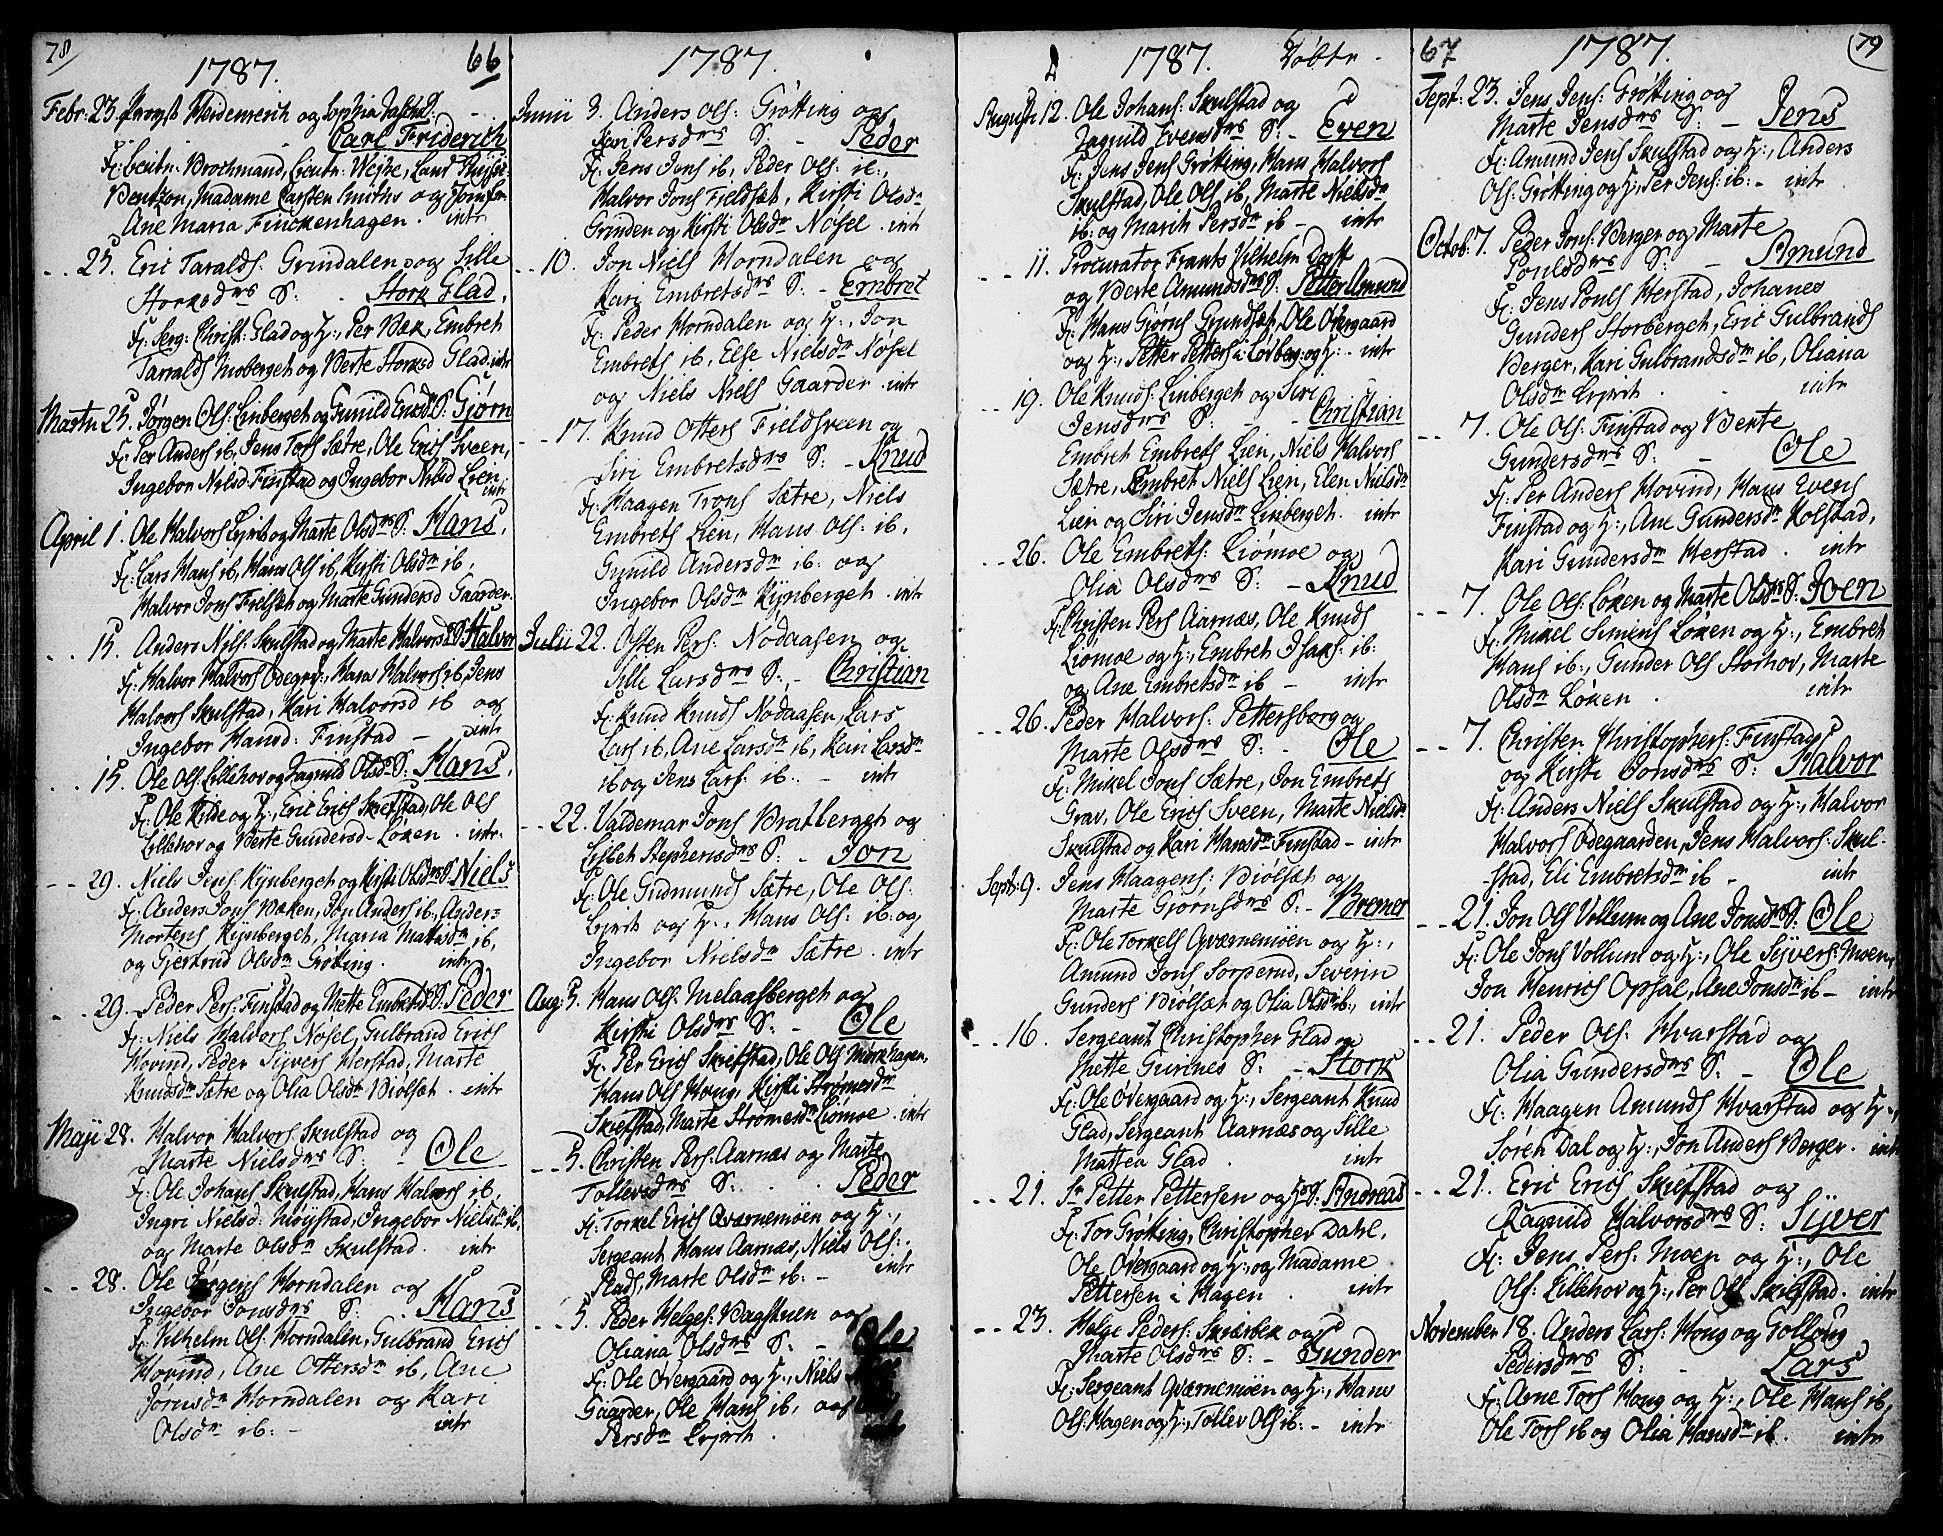 78
66
1787.
Febr: 23. Provst Heidenreich og Sophia
Carl Friderich
F: Leutn: Brochmand, Lieutn: Wejse, Land
Bentzon, Madame Carsten Smiths og Jomfr
Ane Maria Finckenhagen. intr
-- 25. Eric Taralds: Grindalen og Sille
Storksdrs S: Stork Glad.
F: Serg: Christ: Glad og H:, Per Bæk, Embret
Taralds Moberget og Berte Storksd Glad. intr
Martii 25. Jørgen Ols: Linberget og Gunild Ericsds S: Gjørn
F: Per Anders ib, Jens Tors Sætre, Ole Erics Sveen,
Ingebor Nilsd Finstad og Ingebor Nilsd Lien.
intr
April 1. Ole Halvors Lejret og Marte Olsdrs S: Hans.
F: Lars Hans ib, Hans Ols ib, Kirsti Olsdr ib,
Halvor Jons Fielset og Marte Gundersd Gaarder.
-- 15. Anders Niels: Skulstad og Marte Halvorsds S: Halvor
F: Halvor Halvors Ødegrd:, Hans Halvors ib, Jens
Halvors Skulstad, Kari Halvorsd ib og
Ingebor Hansd: Finstad - intr
-- 15. Ole Ols: Lillehov og Ragnild Olsds S: Hans.
F: Ole Kilde og H:, Eric Erics Skiefstad, Ole Ols
Lillehov og Berte Gundersd- Løken. intr.
-- 29. Niels Jens: Kynberget og Kirsti Olsdrs S: Niels
F: Anders Jons Bækken, Jon Anders ib, Anders
Mortens Kynberget, Maria Mattisdr ib,
og Gjertrud Olsdr Grøtting. intr
-- 29. Peder Pers: Finstad og Mette Embretsds S: Peder
F: Niels Halvors Nosel, Gulbrand Erics
Hovind, Peder Syvers Herstad, Marte
Knudsdr Sætre og Olia Olsdr Biølset. intr
Maji 28. Halvor Halvors Skulstad og
Marte Nielsdrs S: - Ole
F: Ole Johans Skulstad, Hans Halvors ib,
Ingri Nielsd: Moystad, Ingebor Nielsdr ib,
og Marte Olsdr Skulstad. intr
-- 28. Ole Jørgens Horndalen og
Ingebor Jonsdrs S: Hans
F: Vilhelm Ols: Horndalen, Gulbrand Erics
Hovind, Ane Ottersdr ib, Ane
Jørnsdr Horndalen og Kari
Olsdr ib: - intr
1787.
Junii 3. Anders Ols: Grøtting og
Kari Persdrs S: - Peder
F: Jens Jens ib, Peder Ols: ib.,
Halvor Jons Fieldset, Kirsti Olsdr
Grinden og Kirsti Olsdr Nosel. intr
-- 10. Jon Niels Horndalen og
Kari Embretsdrs S: - Embret
F: Peder Horndalen og H:, Jon
Embrets ib, Else Nielsdr Nosel
og Niels Niels Gaarder. intr
-- 17. Knud Otters Fieldsveen og
Siri Embretsdrs S: - Knud
F: Haagen Trons Sætre, Niels
Embrets Lien, Hans Ols: ib.
Gunild Andersdr ib: og
Ingebor Olsdr Kynberget. intr
Julii 22. Østen Pers: Nodaasen og
Sille Larsdrs S: - Christian
F: Knud Knuds Nodaasen, Lars
Lars ib, Ane Larsdr ib, Kari Larsdr
ib og Jens Lars: ib. - intr
-- 22. Valdemar Jons Bratberget og
Lisbet Stephensdrs S: - Jon
F: Ole Gudmunds Sætre, Ole Ols:
Lejret og H:, Hans Ols: ib: og
Ingebor Nielsdr Sætre. intr
Aug: 5. Hans Ols: Melaasberget og
Kirsti Olsdrs S: - Ole
F: Per Erics Skiefstad, Ole Ols Mørkhagen,
Hans Ols Houg, Kirsti Strømesdr
Skiefstad, Marte Strømesdr Liømoe. intr
-- 5. Christen Pers: Aarnæs og Marte
Tollevsdrs S: Peder
F: Torkel Erics Qværnemöen og H:,
Sergeant Hans Aarnæs, Niels Ols:
Plads, Marte Olsdr ib: - intr
-- 5. Peder Helges: Bagstuen og
Oliana Olsdrs S: - Ole
F: Ole Øvergaard og H:, Niels
Gaarder, Ole Hans ib, og
Persdr Lejret. intr
1787. Døbte.
August 12. Ole Johans: Skulstad og
Jagnild Evensdrs S: - Even
F: Jens Jens Grøtting, Hans Halvors
Skulstad, Ole Ols ib, Marte Nielsdr
ib: og Marith Persdr ib - intr
-- 11. Procurator Frants Vilhelm
og Berte Amundsdrs S: Petter Amund
F: Hans Giorns Grundset, Ole Øvergaard
og H:, Petter Petters i Løvberg og H: intr
-- 19. Ole Knuds: Linberget og Siri
Jensdrs S: - Christian
Embret Embrets Lien, Niels Halvors
Sætre, Embret Niels Lien, Elen Nielsdr
Lien og Siri Jensdr Linberget. intr
-- 26. Ole Embrets: Liømoe og
Olia Olsdrs S: - Knud
F: Christen Pers Aarnæs, Ole Knuds
Liømoe og H:, Embret Isaks: ib:
og Ane Embretsdr ib - intr
-- 26. Peder Halvors: Pettersborg og
Marte Olsdrs S: - Ole
F: Mikel Jons Sætre, Jon Embrets
Grav, Ole Erics Sveen, Marte Nielsdr
Skulstad og Kari Hansdr Finstad - intr
Sept: 9. Jens Haagens: Biølset og
Marte Gjørnsdrs S: - Bremer
F: Ole Torkels Qværnemöen og H:,
Amund Jons Sorperud, Severin
Gunders Biølset og Olia Olsdr ib:, intr
-- 16. Sergeant Christopher Glad og
Mette Gurines S: - Stork
F: Ole Øvergaard og H:, Sergeant Knud
Glad, Sergeant Aarnæs og Sille
Mattea Glad. intr
-- 21. Sr Petter Pettersen og H:s S: Andreas
F: Tor Grøtting, Christopher Dahl,
Ole Øvergaard og H:, og Madame
Pettersen i Hagen. intr
-- 23. Helge Peders: Skiærbek og
Marte Olsdrs S: - Gunder
F: Sergeant Qværnemöen og H:, Hans
Ols: Hagen og H:, Tollev Ols ib: - intr
67
1787.
79
Sept: 23. Jens Jens: Grøtting og
Marte Jensdrs S: - Jens
F: Amund Jens Skulstad og H:, Anders
Ols: Grøtting og H:, Per Jens: ib: - intr
Octob: 7. Peder Jons: Berger og Marte
Poulsdrs S: - Amund
F: Jens Pouls Herstad, Johanes
Gunders Storberget, Eric Gulbrands
Berger, Kari Gulbrandsdr ib, Oliana
Olsdr Lejret. intr
-- 7. Ole Ols: Finstad og Berte
Gundersdrs S: - Ole
F: Per Anders Hovind, Hans Evens
Finstad og H:, Ane Gundersdr Kolstad,
Kari Gundersdr Herstad. intr
-- 7. Ole Ols: Løken og Marte Olsdrs S: Joen
F: Mikel Simens Løken og H:, Embret
Hans ib:, Gunder Ols Storhov, Marte
Olsdr Løken. intr
-- 7. Christen Christophers: Finstad
og Kirsti Jonsdrs S: Halvor
F: Anders Niels Skulstad og H:, Halvor
Halvors Ødegaarden, Jens Halvors: Skul-
stad, Eli Embretsdr ib - intr
-- 21. Jon Ols Vollum og Ane Jonsdrs S: Ole
F: Ole Jons Vollum og H:, Ole Syvers: Moen,
Jon Henrics Opsal, Ane Jonsdr ib - intr
-- 21. Peder Ols: Kvarstad og
Olia Gundersdrs S: - Ole
F: Haagen Amunds Kvarstad og H:,
Søren Dal og H:, Jon Anders Berger. intr
-- 21. Eric Erics Skiefstad og
Ragnild Halvorsdrs S: Syver
F: Jens Pers: Moen og H:, Ole
Ols: Lillehov og H:, Per Ols Skiefstad. intr
November 18. Anders Lars: Houg og Gollaug
Pedersdrs S: - Lars
F: Arne Tors Houg og H:, Ole Hans ib,
Ole Tors ib og Olia Hansdr ib. intr